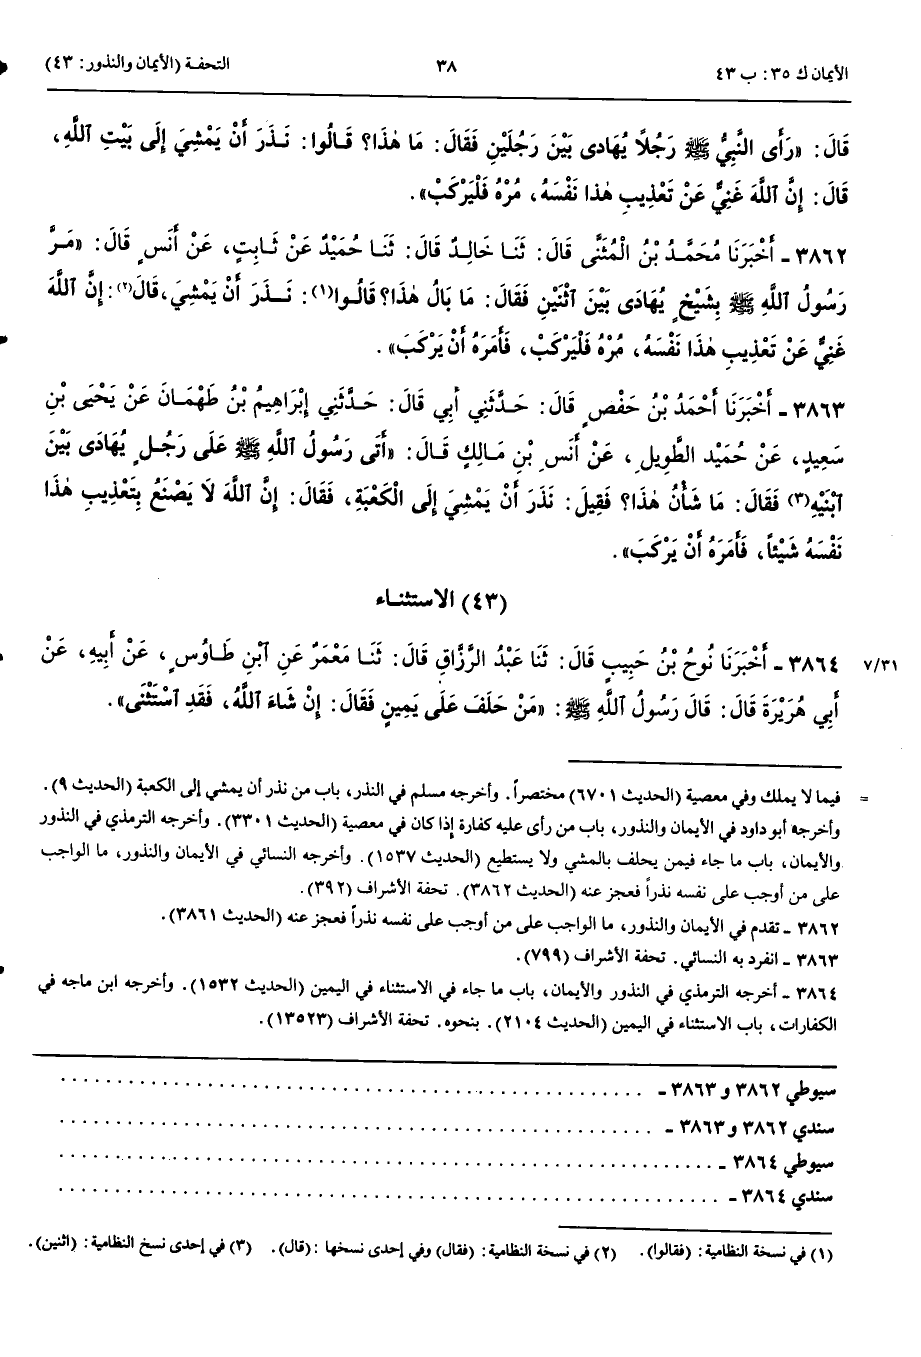 الأيمان ك ٣٥: ب ٤٣ ٣٨ التحفة (الأيمان والنذور: ٤٣)
قَالَ: «رَأَى النَّبِيُّ ﷺ رَجُلاً يُهَادى بَيْنَ رَجُلَيْنِ فَقَالَ: مَا هٰذَا؟ قَالُوا: نَذَرَ أَنْ يَمْشِيَ إِلَى بَيْتِ اللَّهِ،
قَالَ: إِنَّ اللَّهَ غَنِيٌّ عَنْ تَعْذِيبِ هٰذا نَفْسَهُ، مُرْهُ فَلْيَرْكَبْ».
٣٨٦٢ ـ أَخْبَرَنَا مُحَمَّدُ بْنُ الْمُثَنَّى قَالَ: ثَنَا خَالِدٌ قَالَ: ثَنَا حُمَيْدٌ عَنْ ثَابِتٍ، عَنْ أَنَسٍ قَالَ: «مَرَّ
رَسُولُ اللَّهِ ﷺ بِشَيْخٍ يُهَادَى بَيْنَ اثْنَيْنِ فَقَالَ: مَا بَالُ هٰذَا؟ قَالُوا(١): نَذَرَ أَنْ يَمْشِيَ، قَالَ(٢): إِنَّ اللَّهَ
غَنِيٌّ عَنْ تَعْذِيبِ هٰذَا نَفْسَهُ، مُرْهُ فَلْيَرْكَبْ، فَأَمَرَهُ أَنْ يَرْكَبَ».
٣٨٦٣ ـ أَخْبَرَنَا أَحْمَدُ بْنُ حَفْصٍ قَالَ: حَدَّثَنِي أَبِي قَالَ: حَدَّثَنِي إِبْرَاهِيمُ بْنُ طَهْمَانَ عَنْ يَحْيَى بْنِ
سَعِيدٍ، عَنْ حُمَيْد الطَّوِيلِ، عَنْ أَنَسِ بْنِ مَالِكٍ قَالَ: «أَتَى رَسُولُ اللَّهِ ﷺ عَلَى رَجُلٍ يُهَادَى بَيْنَ
ابْنَيْهِ(٣) فَقَالَ: مَا شَأْنُ هٰذَا؟ فَقِيلَ: نَذَرَ أَنْ يَمْشِيَ إِلَى الْكَعْبَةِ، فَقَالَ: إِنَّ اللَّهَ لاَ يَصْنَعُ بِتَعْذِيبِ هٰذَا
نَفْسَهُ شَيْئاً، فَأَمَرَهُ أَنْ يَرْكَبَ».
(٤٣) الاستثناء
٧/٣١ ٣٨٦٤ ـ أَخْبَرَنَا نُوحُ بْنُ حَبِيبٍ قَالَ: ثَنَا عَبْدُ الرَّزَّاقِ قَالَ: ثَنَا مَعْمَرٌ عَنِ ابْنِ طَاوُسٍ، عَنْ أَبِيهِ، عَنْ
أَبِي هُرَيْرَةَ قَالَ: قَالَ رَسُولُ اللَّهِ ﷺ: «مَنْ حَلَفَ عَلَى يَمِينٍ فَقَالَ: إِنْ شَاءَ اللَّهُ، فَقَدِ اسْتَثْنَى».
= فيما لا يملك وفي معصية (الحديث ٦٧٠١) مختصراً. وأخرجه مسلم في النذر، باب من نذر أن يمشي إلى الكعبة (الحديث ٩).
وأخرجه أبو داود في الأيمان والنذور، باب من رأى عليه كفارة إذا كان في معصية (الحديث ٣٣٠١). وأخرجه الترمذي في النذور
والأيمان، باب ما جاء فيمن يحلف بالمشي ولا يستطيع (الحديث ١٥٣٧). وأخرجه النسائي في الأيمان والنذور، ما الواجب
على من أوجب على نفسه نذراً فعجز عنه (الحديث ٣٨٦٢). تحفة الأشراف (٣٩٢).
٣٨٦٢ ـ تقدم في الأيمان والنذور، ما الواجب على من أوجب على نفسه نذراً فعجز عنه (الحديث ٣٨٦١).
٣٨٦٣ ـ انفرد به النسائي. تحفة الأشراف (٧٩٩).
٣٨٦٤ ـ أخرجه الترمذي في النذور والأيمان، باب ما جاء في الاستثناء في اليمين (الحديث ١٥٣٢). وأخرجه ابن ماجه في
الكفارات، باب الاستثناء في اليمين (الحديث ٢١٠٤). بنحوه. تحفة الأشراف (١٣٥٢٣).
سيوطي ٣٨٦٢ و ٣٨٦٣ ـ ..........
سندي ٣٨٦٢ و ٣٨٦٣ ـ ..........
سيوطي ٣٨٦٤ ـ ..........
سندي ٣٨٦٤ ـ ..........
(١) في نسخة النظامية: (فقالوا). (٢) في نسخة النظامية: (فقال) وفي إحدى نسخها: (قال). (٣) في إحدى نسخ النظامية: (اثنين).